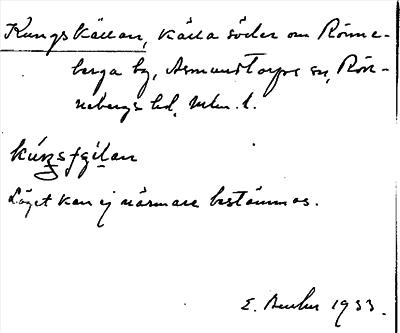 Kungskällan, källa söder om Rönne-
berga by, Asmundtorps sn, Rön-
nebergs hd, Mlm. l.
Läget kan ej närmare bestämmas.
E. 1933.